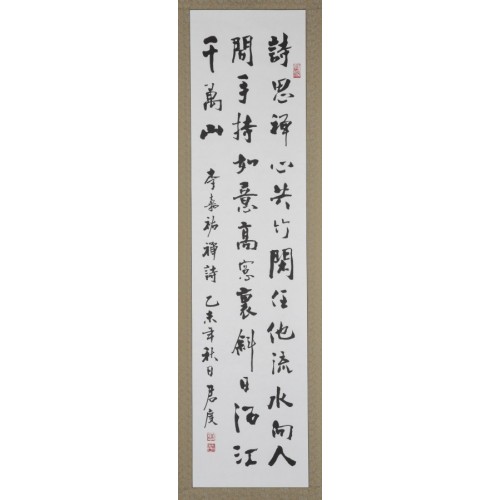 詩思禪心共竹閑任他流水向人
間手持如意高窓裏斜日沿江
千萬山 李嘉祐禪詩 乙未年秋日 度